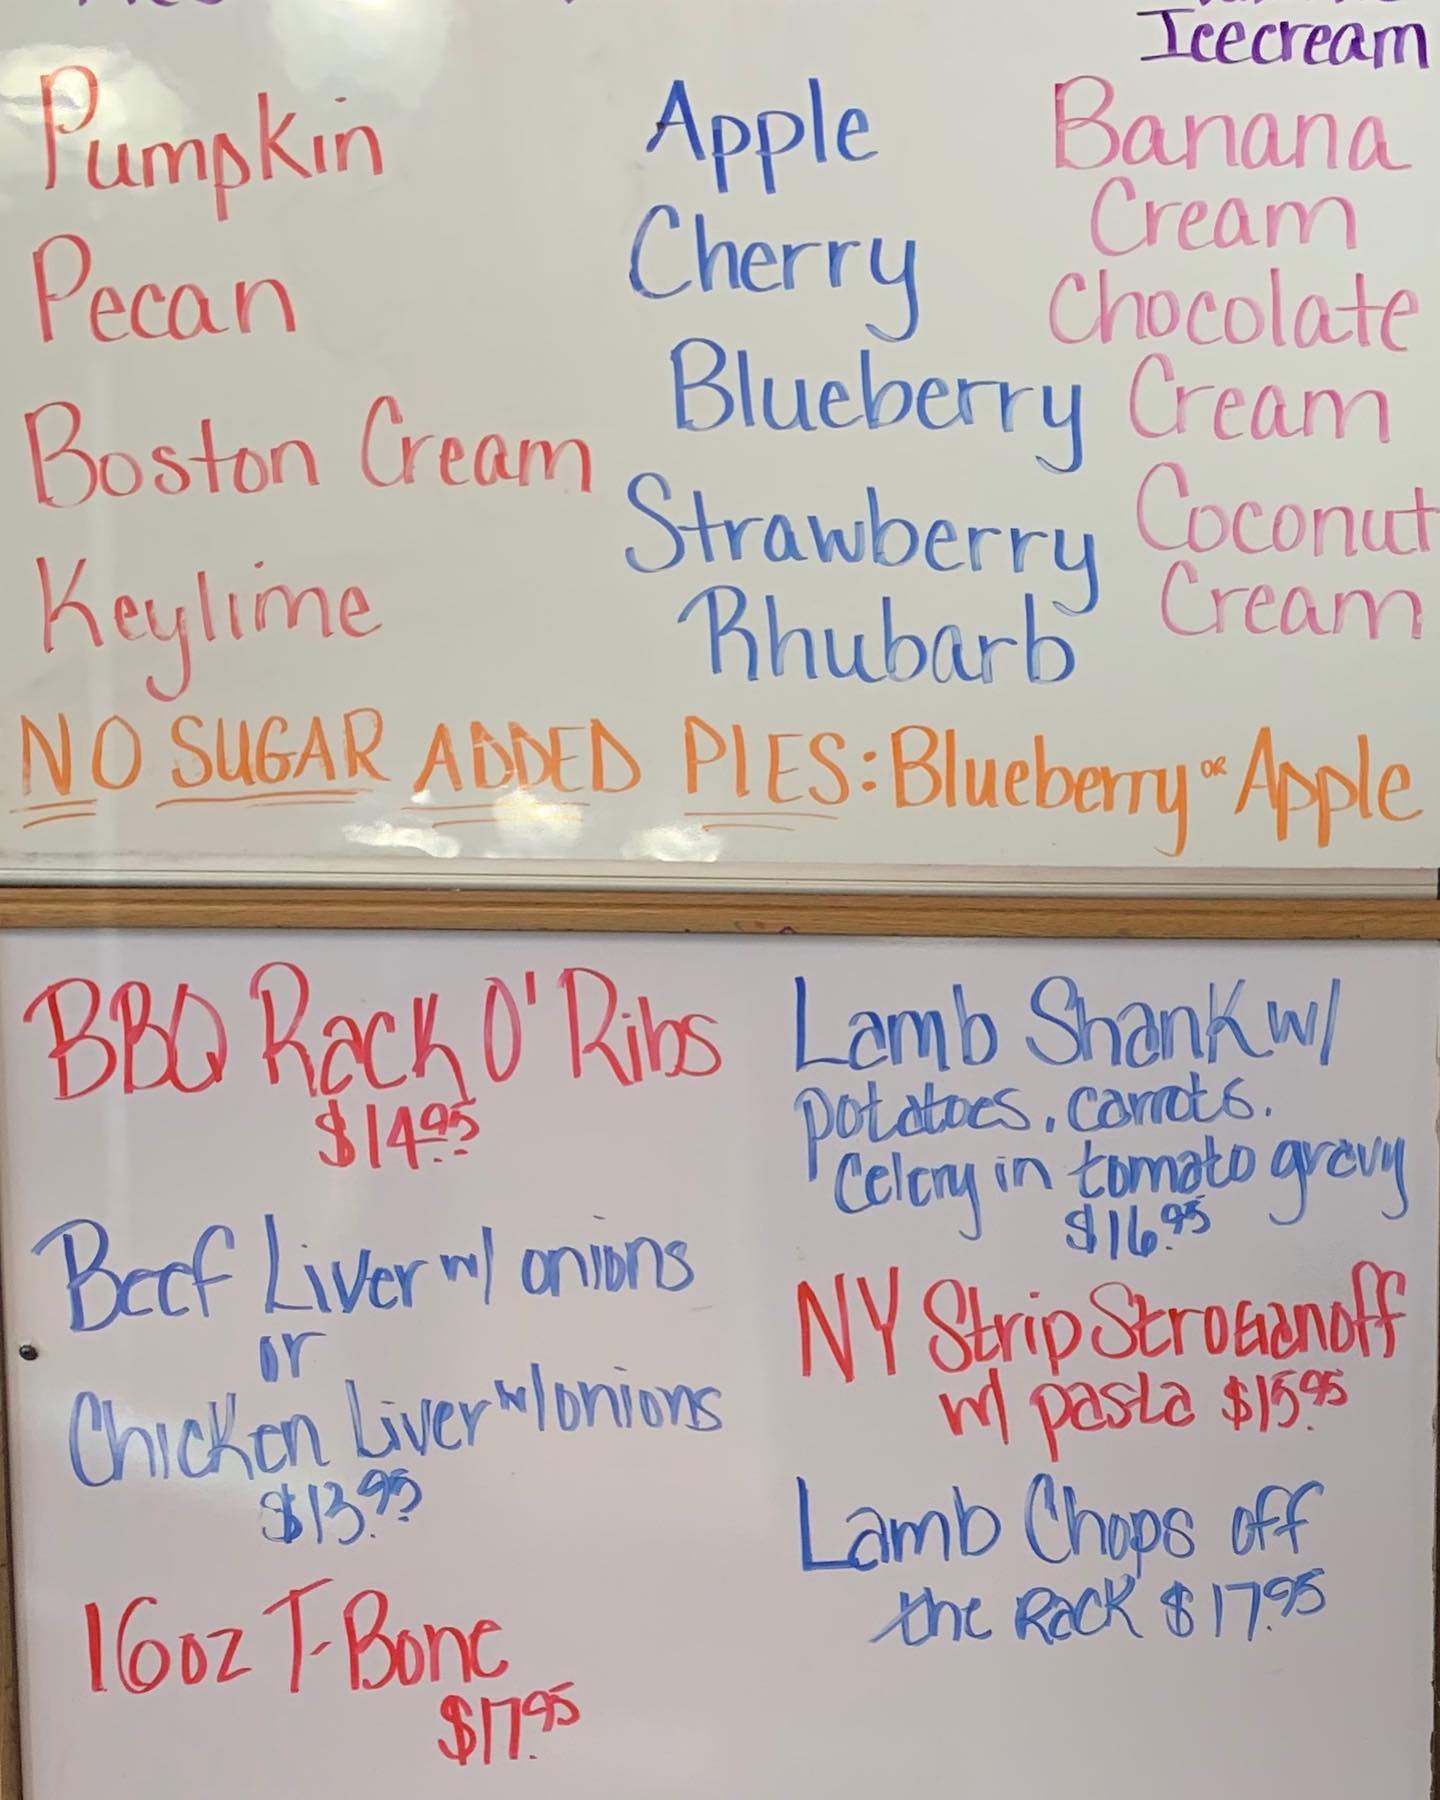 Icecream
Pumpkin
Pecan
Boston Cream
Keylime
Apple
Cherry
Blueberry
Strawberry
Rhubarb
Banana
Cream
Chocolate
Cream
Coconut
Cream
NO SUGAR ADDED PIES: Blueberry OR Apple
BBQ Rack O' Ribs
$14.95
Beef Liver w/ onions
or
Chicken Liver w/ onions
$13.95
16oz T-Bone
$17.95
Lamb Shank w/
potatoes, carrots,
Celery in tomato gravy
$16.95
NY Strip Stroganoff
w/ pasta $15.95
Lamb Chops off
the Rack $17.95